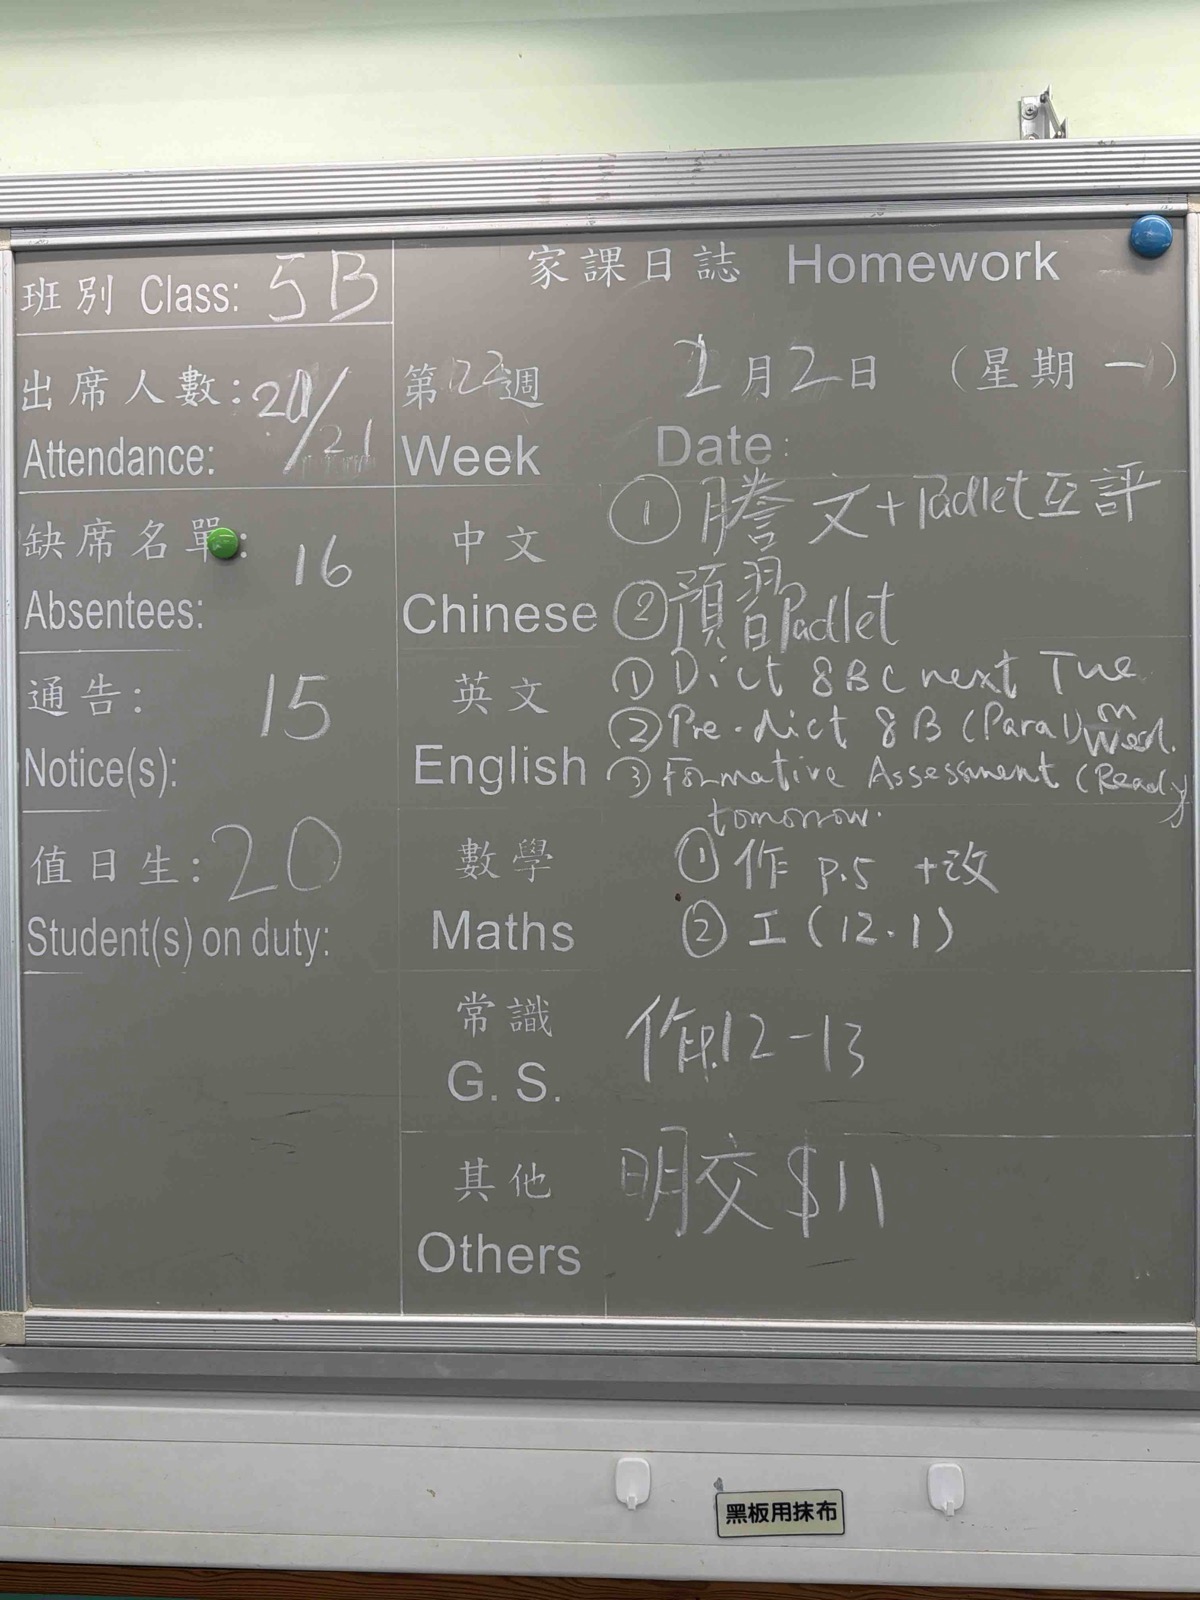 班別 Class: 5B
出席人數: 20/21
Attendance:
缺席名單: 16
Absentees:
通告: 15
Notice(s):
值日生: 20
Student(s) on duty:
家課日誌 Homework
第22週 2月2日 (星期一)
Week Date:
中文
Chinese
① 謄文+Padlet互評
② 預習Padlet
英文
English
① Dict 8BC next Tue
② Pre-dict 8B (Para1) on Wed.
③ Formative Assessment (Ready
tomorrow.
數學
Maths
① 作 p.5 +改
② 工(12.1)
常識
G. S.
作p.12-13
其他
Others
明交$11
黑板用抹布